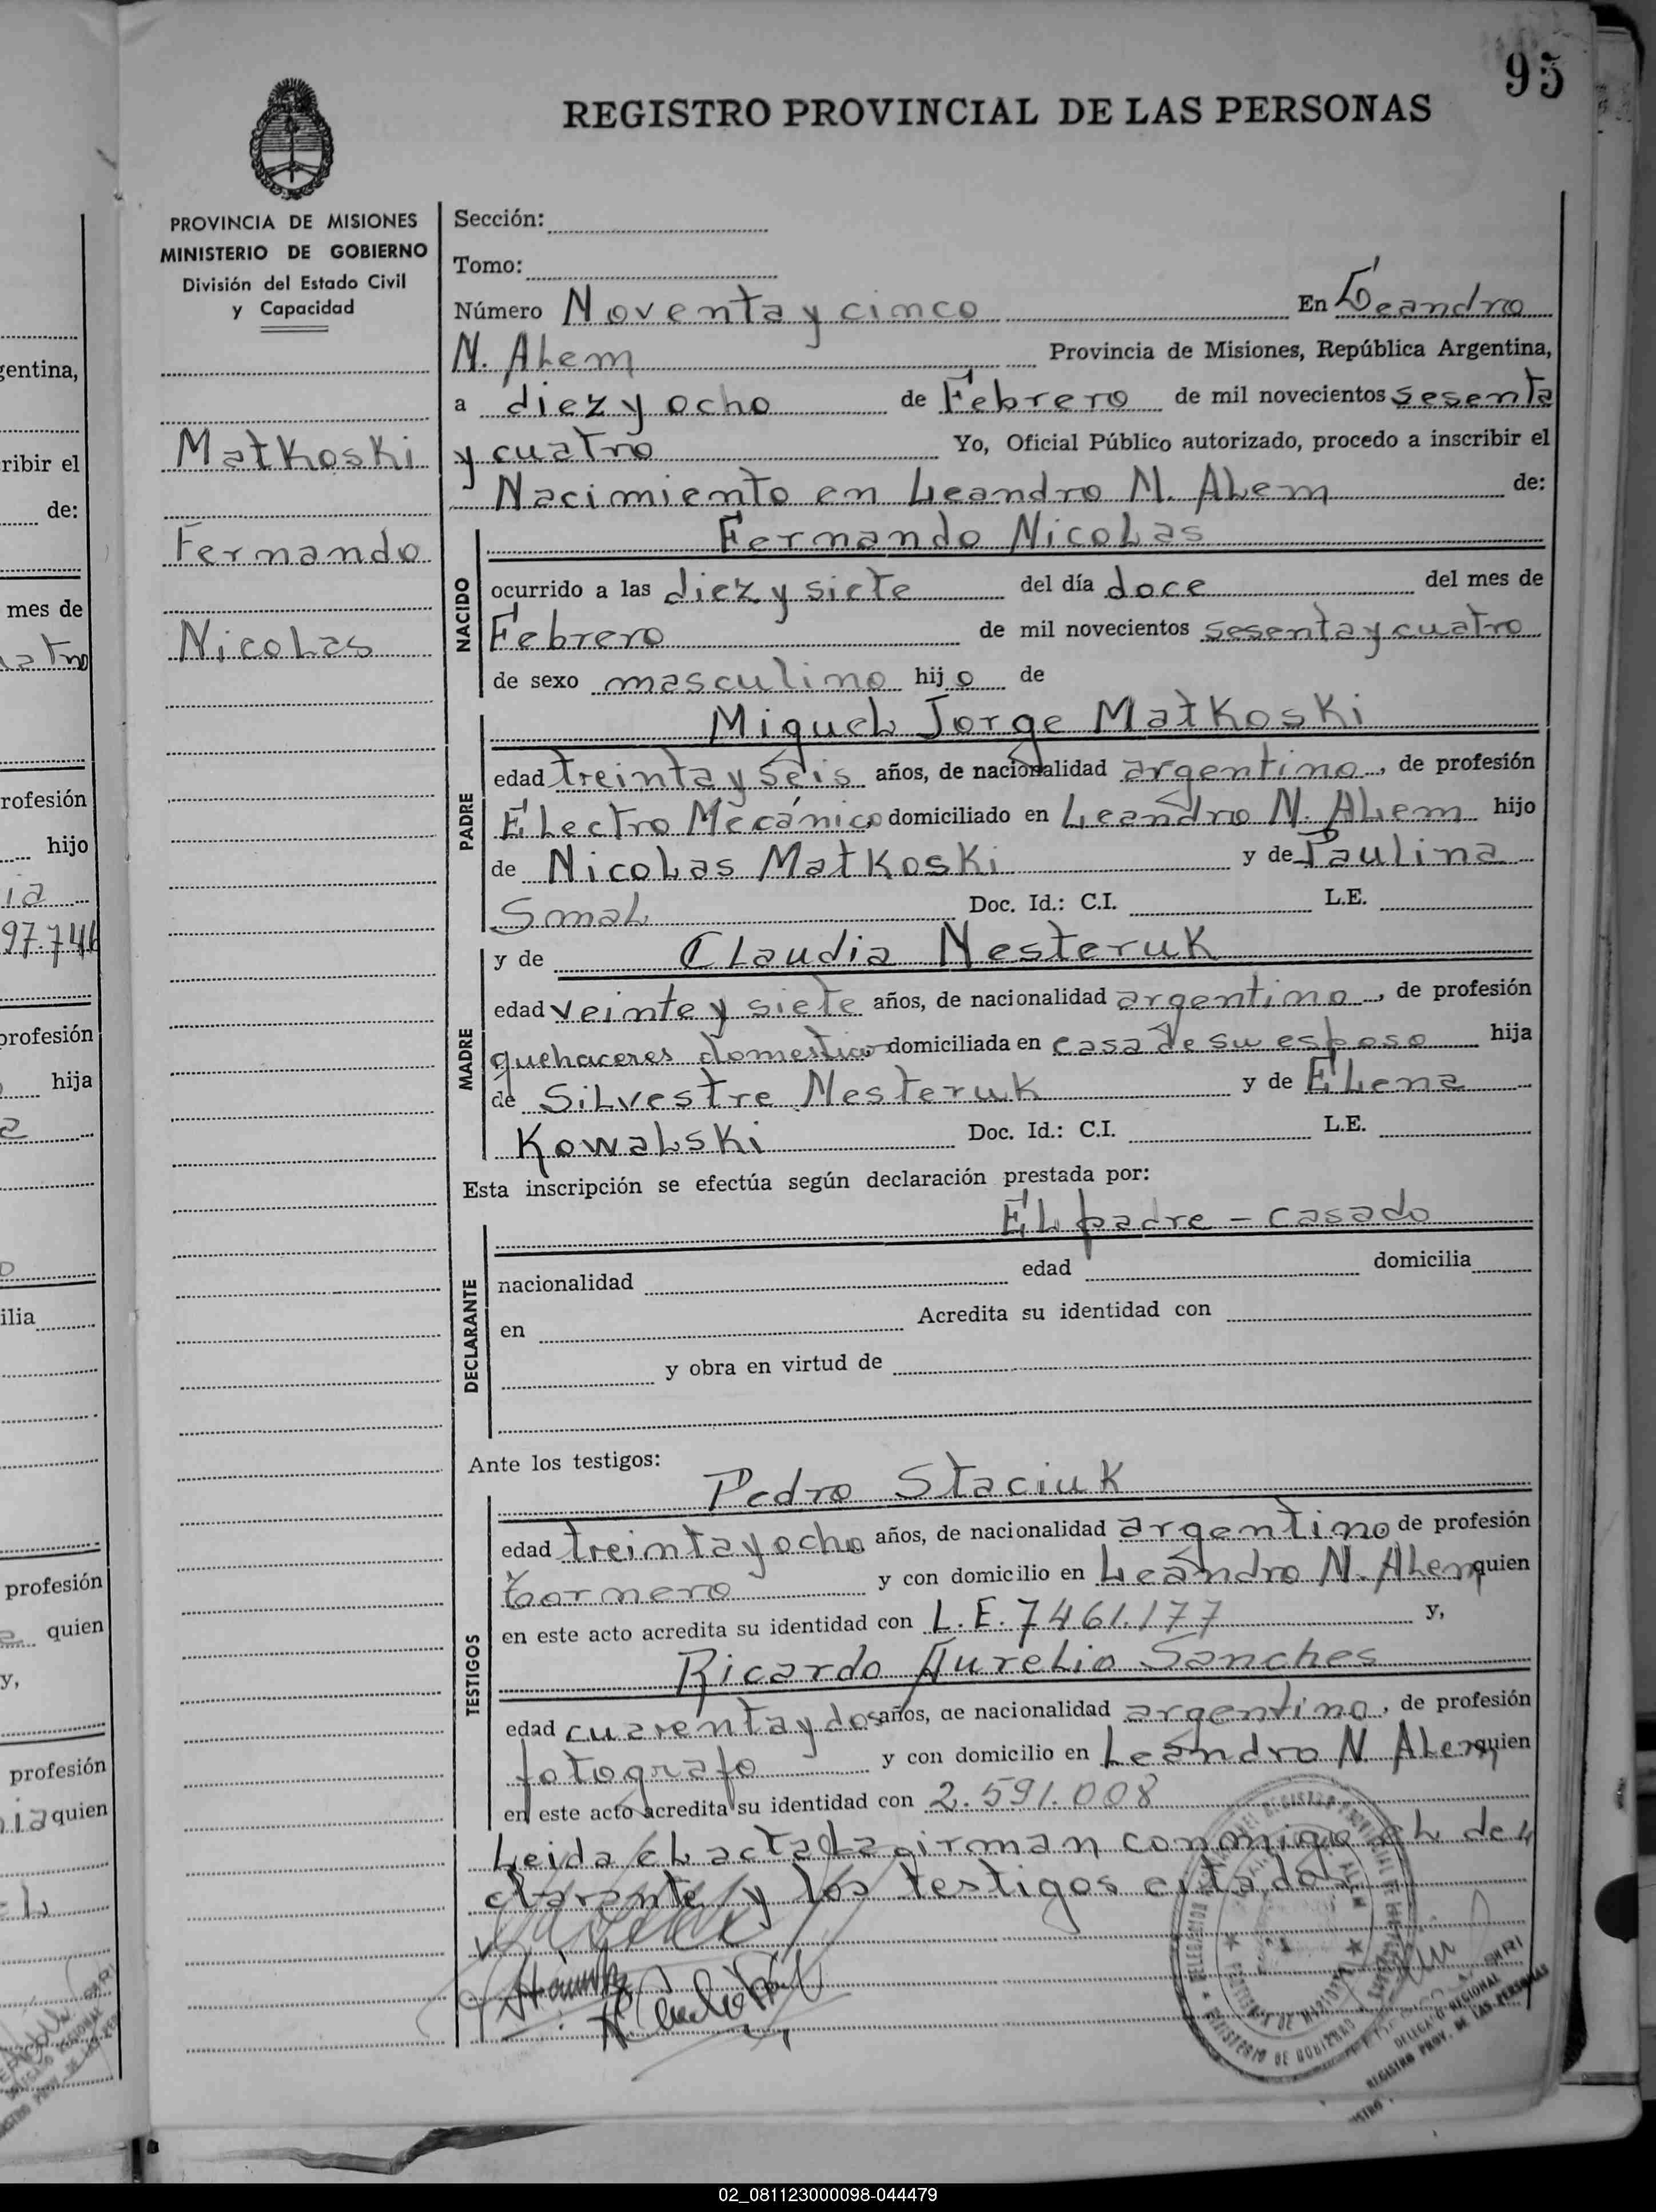 95
REGISTRO PROVINCIAL DE LAS PERSONAS
PROVINCIA DE MISIONES
MINISTERIO DE GOBIERNO
División del Estado Civil
y Capacidad
Matkoski
Fernando
Nicolas
Sección:
Tomo:
Número Noventa y cinco En Leandro
N. Alem Provincia de Misiones, República Argentina,
a diez y ocho de Febrero de mil novecientos sesenta
y cuatro Yo, Oficial Público autorizado, procedo a inscribir el
Nacimiento en Leandro N. Alem de:
NACIDO
Fernando Nicolas
ocurrido a las diez y siete del día doce del mes de
Febrero de mil novecientos sesenta y cuatro
de sexo masculino hijo de
PADRE
Miguel Jorge Matkoski
edad treinta y seis años, de nacionalidad argentino, de profesión
Electro Mecánico domiciliado en Leandro N. Alem hijo
de Nicolas Matkoski y de Paulina
Smal Doc. Id.: C.I. L.E.
MADRE
y de Claudia Nesteruk
edad veinte y siete años, de nacionalidad argentino, de profesión
quehaceres domestico domiciliada en casa de su esposo hija
de Silvestre Nesteruk y de Elena
Kowalski Doc. Id.: C.I. L.E.
Esta inscripción se efectúa según declaración prestada por:
El padre - casado
DECLARANTE
nacionalidad edad domicilia
en Acredita su identidad con
y obra en virtud de
Ante los testigos:
TESTIGOS
Pedro Staciuk
edad treinta y ocho años, de nacionalidad argentino de profesión
tornero y con domicilio en Leandro N. Alem quien
en este acto acredita su identidad con L.E. 7461.177 y,
Ricardo Aurelio Sanches
edad cuarenta y dos años, de nacionalidad argentino, de profesión
fotografo y con domicilio en Leandro N. Alem quien
en este acto acredita su identidad con 2.591.008
Leida el acta La girman conmigo el de
clarante y los testigos citados
DELEGADO REGIONAL
REGISTRO PROV. DE LAS PERSONAS
gentina,
ribir el
de:
mes de
rofesión
hijo
97.746
profesión
hija
ilia
profesión
quien
y,
profesión
quien
02_081123000098-044479